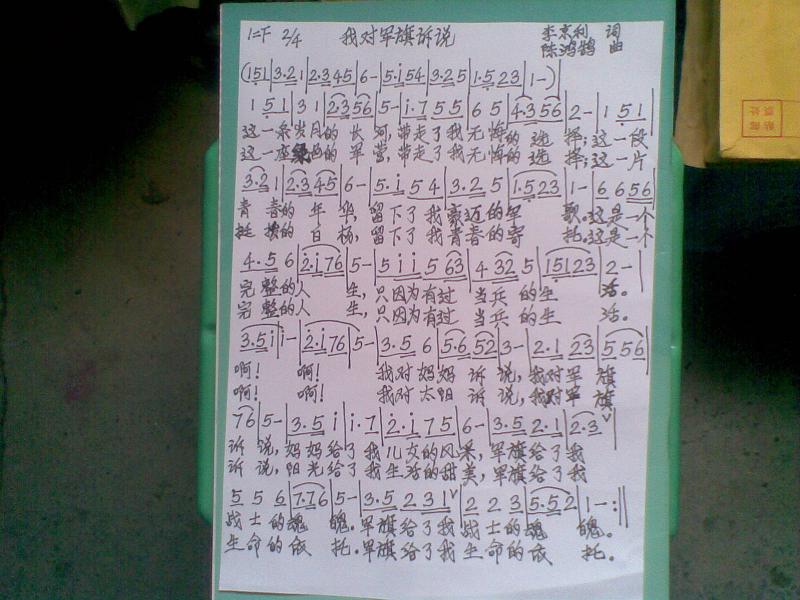 1=F 2/4 我对军旗诉说 李京利 词
陈鸿鹄 曲
(151|3·21|2·345|6-|5·i54|3·25|1·523|1-)|
1 51|31|2·356|5-|i·755|65|4·356|2-|1 51|
这一条岁月的长河,带走了我无悔的选择;这一段
这一座绿色的军营,带走了我无悔的选择;这一片
3·21|2·345|6-|5·i54|3·25|1·523|1-|6 656|
青春的年华,留下了我豪迈的军歌.这是一个
挺拔的白杨,留下了我青春的寄托.这是一个
4·56|2·i76|5-|5ii563|4 325|15123|2-|
完整的人生,只因为有过当兵的生活。
完整的人生,只因为有过当兵的生活。
3·5i|i-|2·i76|5-|3·56|5·652|3-|2·123|556|
啊!啊!我对妈妈诉说,我对军旗
啊!啊!我对太阳诉说,我对军旗
76|5-|3·5i|i·7|2·i75|6-|3·52·1|2·3|
诉说,妈妈给了我儿女的风采,军旗给了我
诉说,阳光给了我生活的甜美,军旗给了我
5 5 6|7·76|5-|3·5231|2 2 3|5·52|1-:||
战士的魂魄.军旗给了我战士的魂魄.
生命的依托.军旗给了我生命的依托.